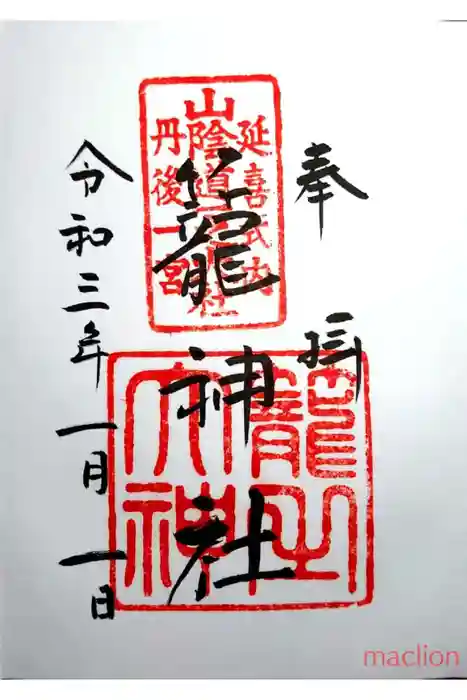 奉拝
籠神社
令和三年一月一日
延喜式内
山陰道一之大社
丹後一宮
籠之大神
maclion